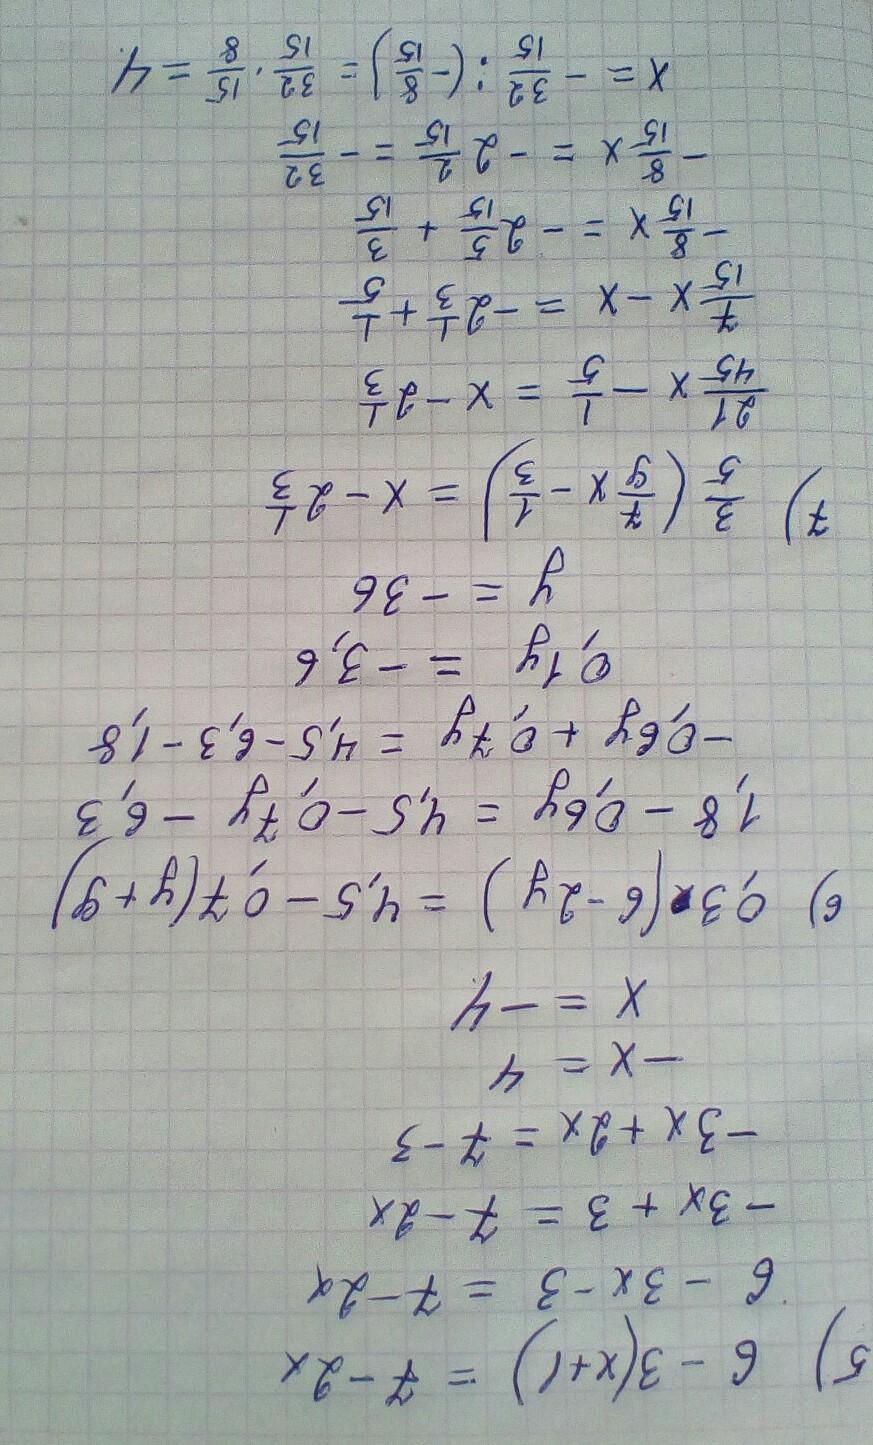 5) 6 - 3(x+1) = 7 - 2x
6 - 3x - 3 = 7 - 2x
-3x + 3 = 7 - 2x
-3x + 2x = 7 - 3
-x = 4
x = -4
6) 0,3(6 - 2y) = 4,5 - 0,7(y+9)
1,8 - 0,6y = 4,5 - 0,7y - 6,3
-0,6y + 0,7y = 4,5 - 6,3 - 1,8
0,1y = -3,6
y = -36
7) 3/5 (7/9 x - 1/3) = x - 2 1/3
21/45 x - 1/5 = x - 2 1/3
7/15 x - x = -2 1/3 + 1/5
-8/15 x = -2 5/15 + 3/15
-8/15 x = -2 2/15 = -32/15
x = -32/15 : (-8/15) = 32/15 · 15/8 = 4